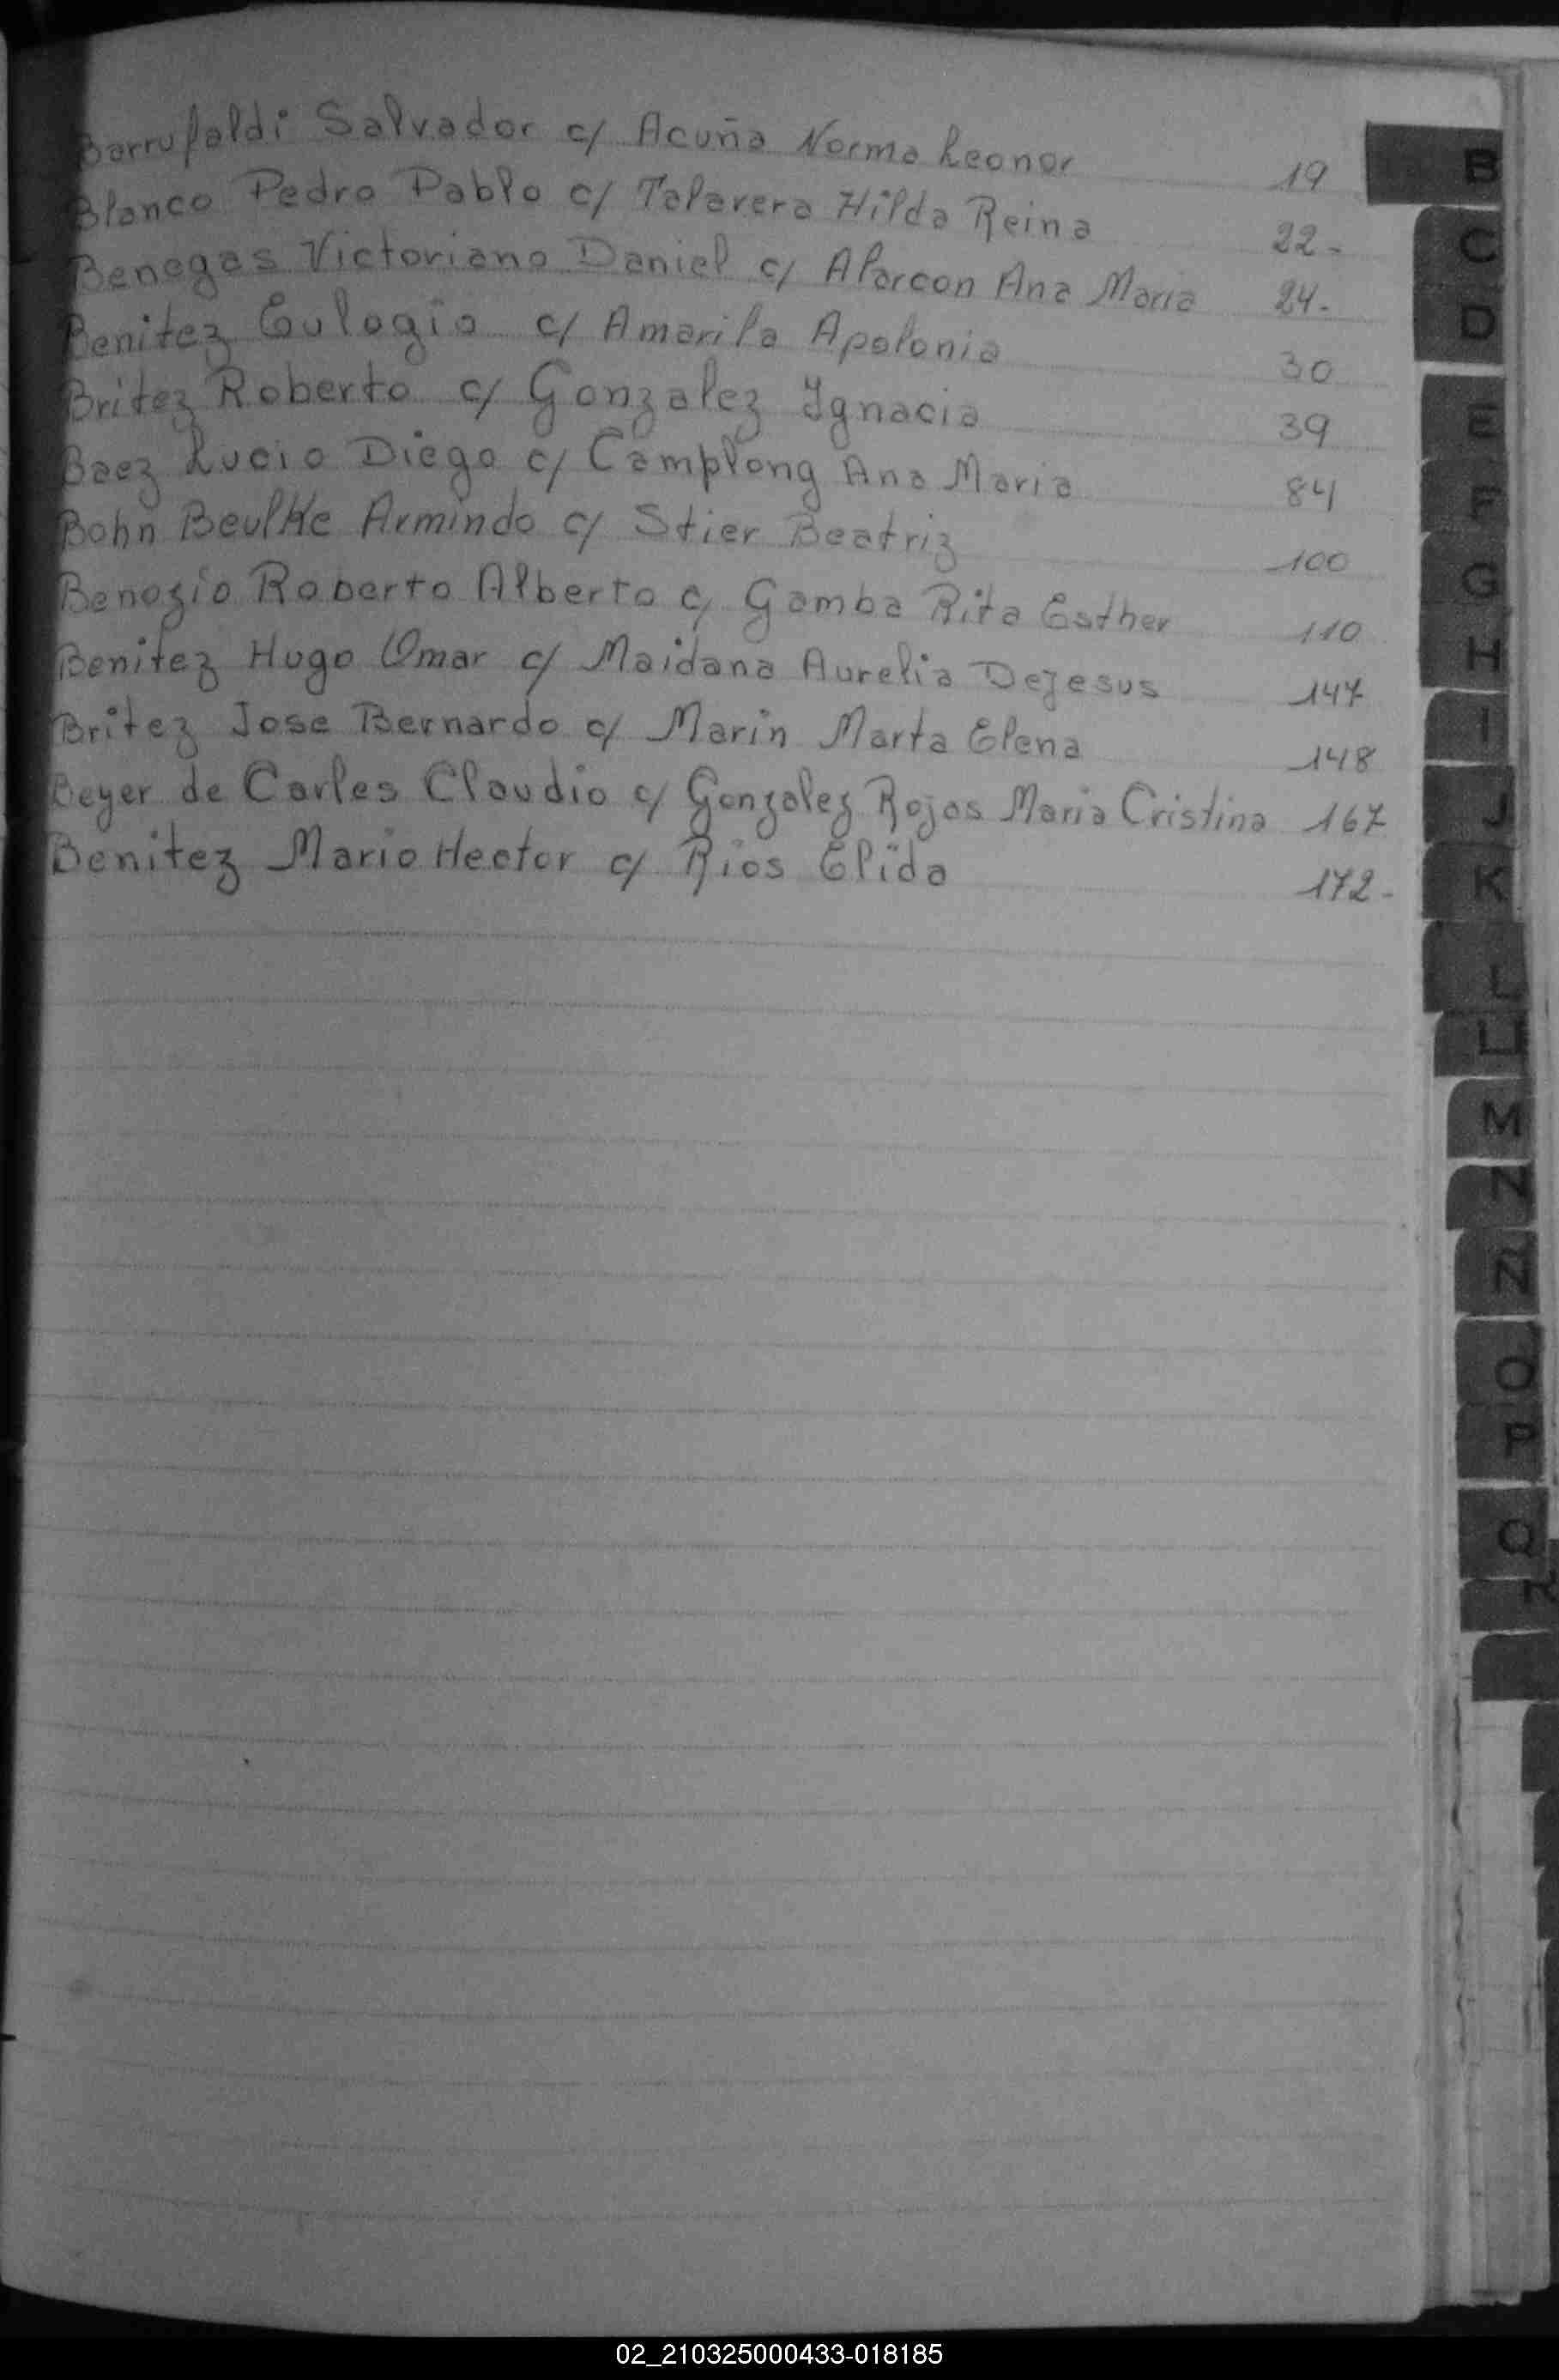 Barrufaldi Salvador c/ Acuña Norma Leonor 19
Blanco Pedro Pablo c/ Talavera Hilda Reina 22-
Benegas Victoriano Daniel c/ Alarcon Ana Maria 24-
Benitez Eulogio c/ Amarila Apolonia 30
Britez Roberto c/ Gonzalez Ignacia 39
Baez Lucio Diego c/ Camplong Ana Maria 84
Bohn Beulke Armindo c/ Stier Beatriz 100
Benozio Roberto Alberto c/ Gamba Rita Esther 110
Benitez Hugo Omar c/ Maidana Aurelia Dejesus 147
Britez Jose Bernardo c/ Marin Marta Elena 148
Beyer de Carles Claudio c/ Gonzalez Rojas Maria Cristina 167
Benitez Mario Hector c/ Rios Elida 172-
B
C
D
E
F
G
H
I
J
K
L
LL
M
N
Ñ
O
P
Q
R
02_210325000433-018185